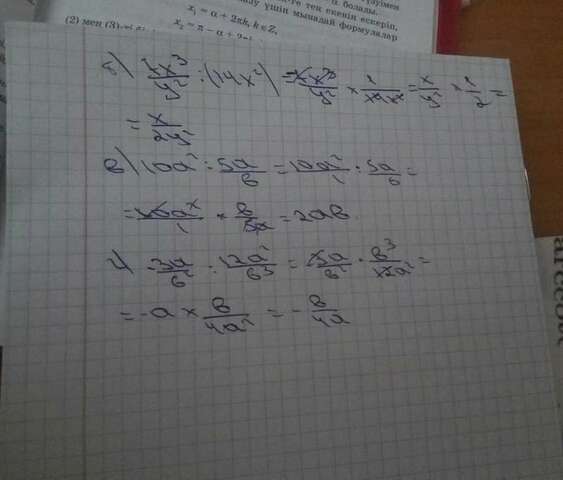 x₁ = α + 2πk, k∈Z,
(2) мен (3)
x₂ = π − α + 2π
үшін мынадай формулалар
-ге тең екенін ескеріп,
болады.
б) 7x³/y² : (14x²) = 7x³/y² × 1/14x² = x/y² × 1/2 =
= x/2y²
в) 10a² : 5a/в = 10a²/1 : 5a/в =
= 10a²/1 × в/5a = 2aв
г) -3a/в² : 12a²/в³ = -3a/в² · в³/12a² =
= -a × в/4a² = - в/4a